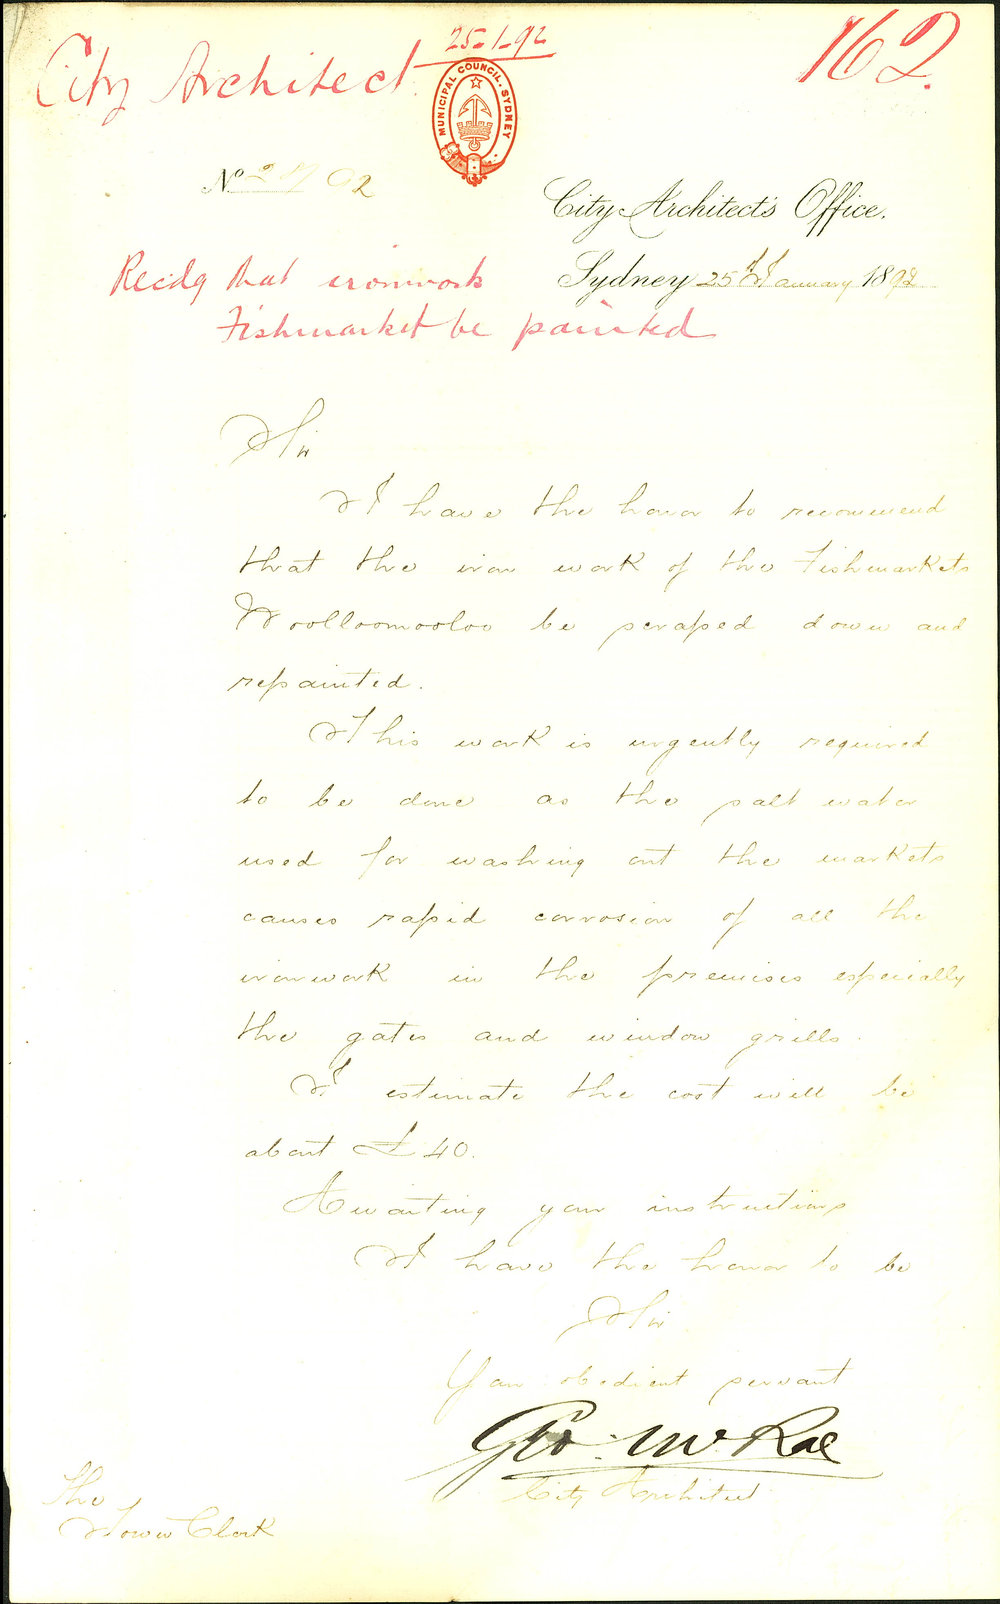 25-1-92
City Architect
162.
MUNICIPAL COUNCIL. SYDNEY
No 92
City Architect's Office.
Sydney 25th January 1892
Recdg that ironwork
Fishmarket be painted
Sir
I have the honor to recommend
that the iron work of the Fishmarkets
Woolloomooloo be scraped down and
repainted.
This work is urgently required
to be done as the salt water
used for washing out the markets
causes rapid corrosion of all the
ironwork in the premises especially
the gates and window grills.
I estimate the cost will be
about £40.
Awaiting your instructions
I have the honor to be
Sir
Your obedient servant
Geo. McRae
City Architect
The
Town Clerk